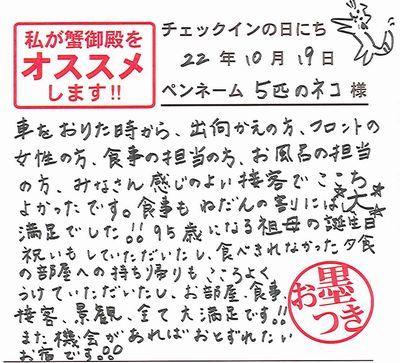 私が蟹御殿を
オススメ
します!!
チェックインの日にち
22年10月19日
ペンネーム 5匹のネコ 様
車をおりた時から、出向かえの方、フロントの
女性の方、食事の担当の方、お風呂の担当
の方、みなさん感じのよい接客でここち
よかったです。食事もねだんの割には☆大☆
満足でした!! 95歳になる祖母の誕生日
祝いもしていただいたし、食べきれなかった夕食
の部屋への持ち帰りもこころよく
うけていただいたし、お部屋、食事、
接客、景観、全て大満足です!!
また機会があればおとずれたい
お宿です。
お墨
つき